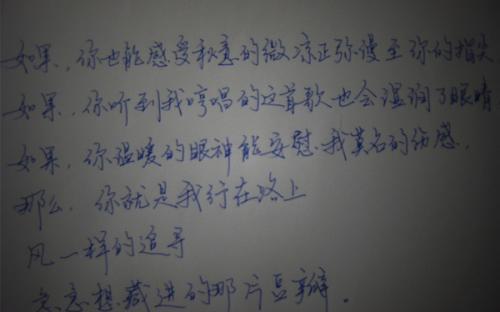 如果，你也能感受秋意的微凉正弥漫至你的指尖
如果，你听到我哼唱的这首歌也会湿润了眼睛
如果，你温暖的眼神能安慰我莫名的伤感，
那么，你就是我行在路上
风一样的追寻
急急想藏进的那片豆瓣。